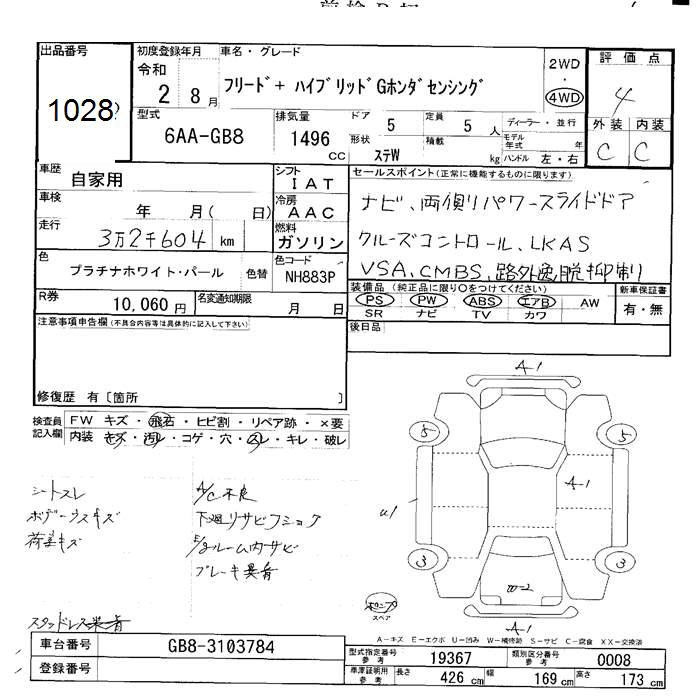 出品番号
1028
初度登録年月
令和
2 8月
車名・グレード
フリード+ ハイブリッドGホンダセンシング
2WD
・
4WD
評価点
4
外装 内装
C C
型式
6AA-GB8
排気量
1496
CC
ドア 5
定員 5 人
形状 ステW
積載 kg
ディーラー・並行
モデル年式 年
ハンドル 左・右
車歴
自家用
シフト
IAT
車検
年 月( 日)
冷房
AAC
走行
3万2千604 km
燃料
ガソリン
色
プラチナホワイト・パール
色替
色コード
NH883P
R券
10,060円
名変通知期限
月 日
セールスポイント(正常に機能するものに限ります)
ナビ、両側パワースライドドア
クルーズコントロール、LKAS
VSA、CMBS、路外逸脱抑制
装備品 (純正品に限り○をつけてください)
PS PW ABS エアB AW
SR ナビ TV カワ
新車保証書
有・無
後日品
注意事項申告欄(不具合内容等は具体的に記入して下さい)
修復歴 有〔箇所 〕
検査員
記入欄
FW キズ・飛石・ヒビ割・リペア跡・×要
内装 キズ・汚レ・コゲ・穴・スレ・キレ・破レ
シートスレ
荷室キズ
A/C不良
下廻リサビ
ルーム内サビ
ブレーキ異音
A-1
5 5
A-1
U1
3 3
W-2
A-1
スペア
A-キズ E-エクボ U-凹み W-補修跡 S-サビ C-腐食 XX-交換済
車台番号
GB8-3103784
登録番号
型式指定番号
参考
19367
類別区分番号
参考
0008
車庫証明用
参考
長さ 426 cm
幅 169 cm
高さ 173 cm